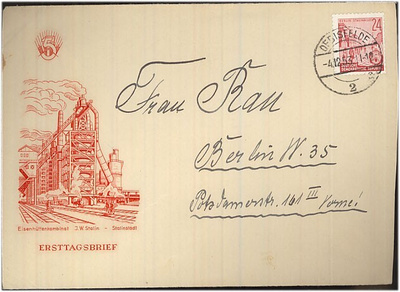 5
24
OEBISFELDE
-4.12.53
2
Frau Rau
Berlin W. 35
Potsdamerstr. 161 III Vorne!
Eisenhüttenkombinat J. W. Stalin - Stalinstadt
ERSTTAGSBRIEF